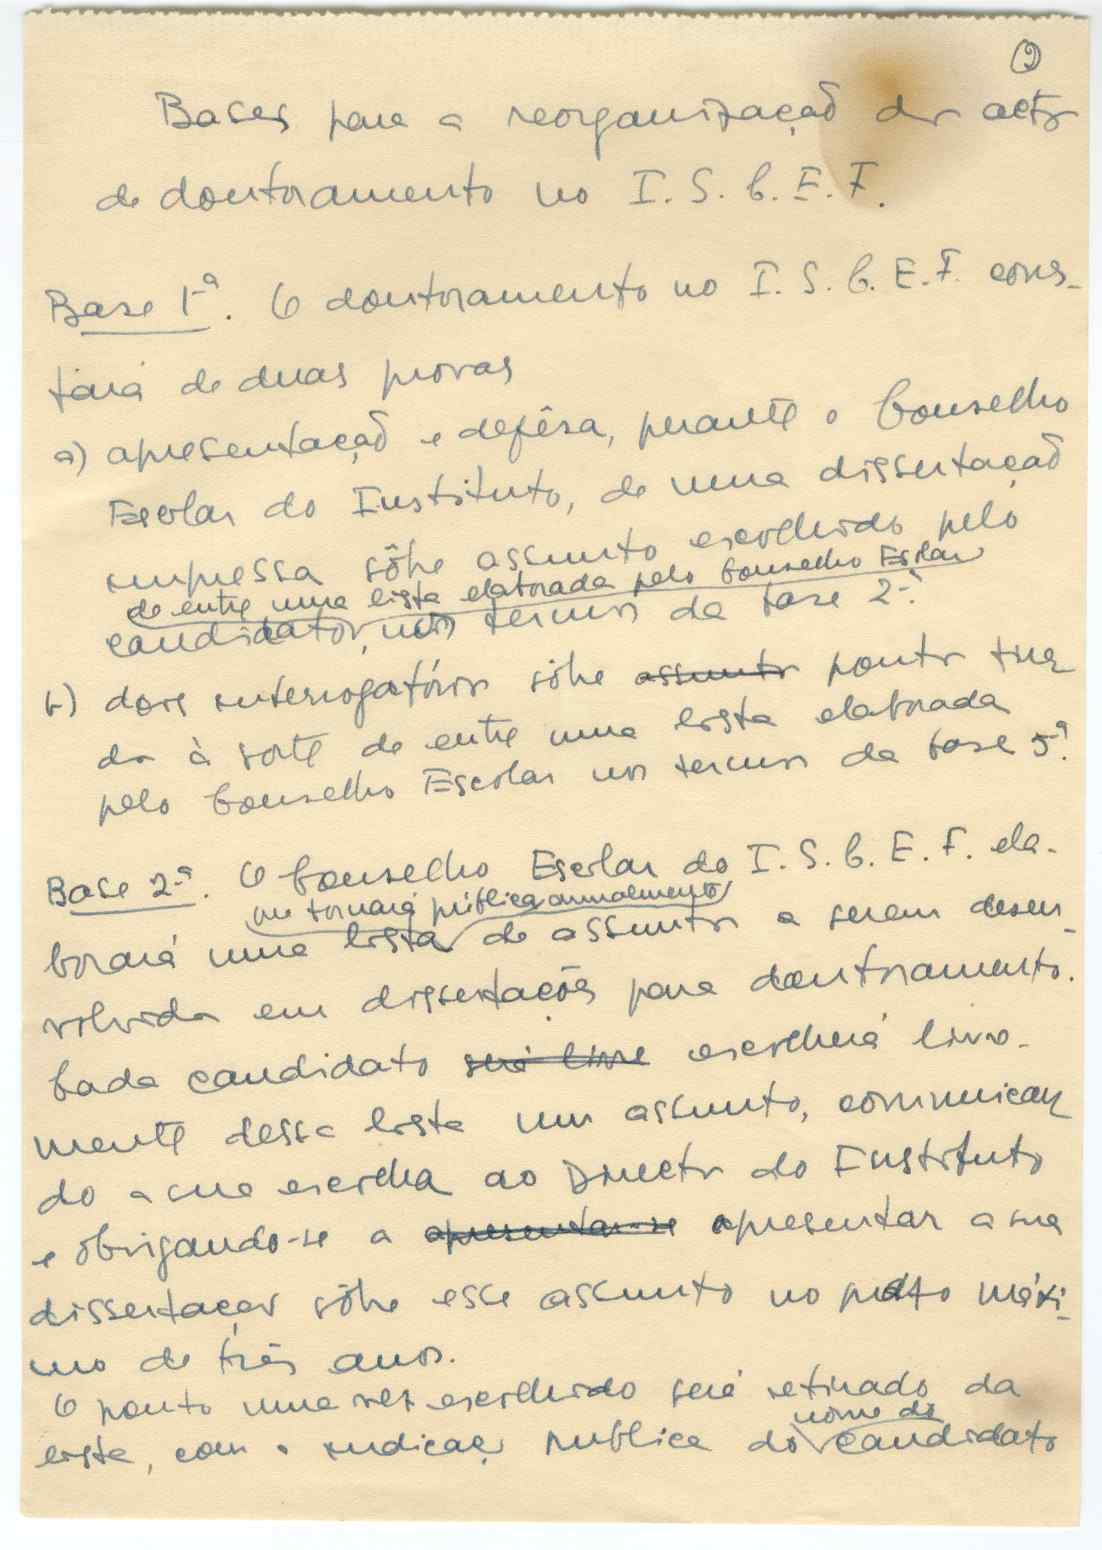 Bases para a reorganização dos actos
de doutoramento no I. S. C. E. F.
Base 1ª. O doutoramento no I. S. C. E. F. cons-
tará de duas provas
a) apresentação e defêsa, perante o Conselho
Escolar do Instituto, de uma dissertação
impressa sôbre assunto escolhido pelo
de entre uma lista elaborada pelo Conselho Escolar
candidato, nos termos da base 2ª.
b) dois interrogatórios sôbre assuntos pontos tira
dos à sorte de entre uma lista elaborada
pelo Conselho Escolar nos termos da base 5ª.
Base 2ª. O Conselho Escolar do I. S. C. E. F. ela-
que tornará pública anualmente
borará uma lista de assuntos a serem desen-
volvidos em dissertações para doutoramento.
Cada candidato será livre escolherá livre-
mente dessa lista um assunto, comunican
do a sua escolha ao Director do Instituto
e obrigando-se a apresentar-se apresentar a sua
dissertação sôbre esse assunto no prazo máxi-
mo de três anos.
O ponto uma vez escolhido será retirado da
lista, com a indicação publica do candidato
nome do